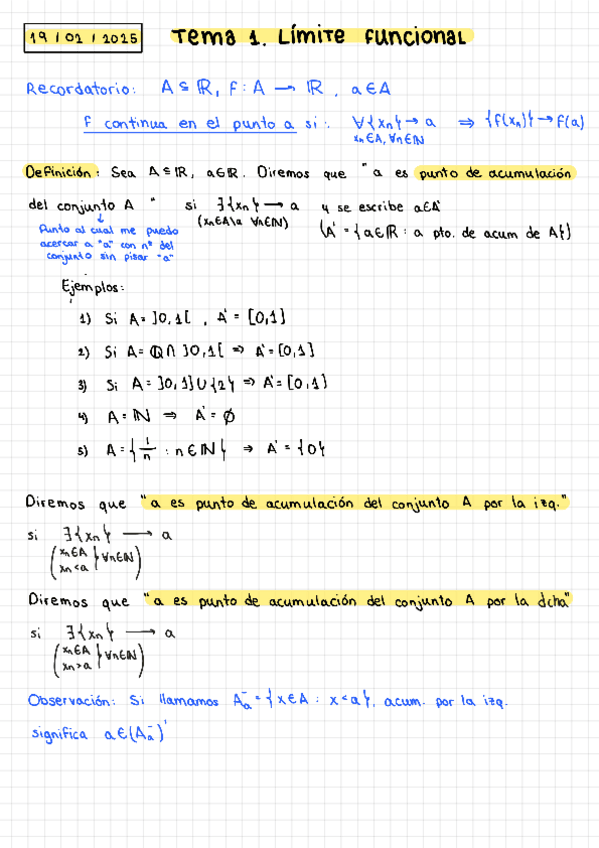 19 / 02 / 2025 Tema 1. Límite funcional
Recordatorio: A ⊆ ℝ, f: A → ℝ, a ∈ A
f continua en el punto a si: ∀{xn} → a ⇒ {f(xn)} → f(a)
xn∈A, ∀n∈ℕ
Definición: Sea A⊆ℝ, a∈ℝ. Diremos que "a es punto de acumulación
del conjunto A" si ∃{xn} → a y se escribe a∈A'
(xn∈A\a ∀n∈ℕ) (A' = {a∈ℝ : a pto. de acum de A})
↓
Punto al cual me puedo
acercar a "a" con nº del
conjunto sin pisar "a"
Ejemplos:
1) Si A = ]0,1[ , A' = [0,1]
2) Si A = ℚ ∩ ]0,1[ ⇒ A' = [0,1]
3) Si A = ]0,1] ∪ {2} ⇒ A' = [0,1]
4) A = ℕ ⇒ A' = ∅
5) A = {1/n : n ∈ ℕ} ⇒ A' = {0}
Diremos que "a es punto de acumulación del conjunto A por la izq."
si ∃{xn} → a
(xn∈A
xn<a } ∀n∈ℕ)
Diremos que "a es punto de acumulación del conjunto A por la dcha"
si ∃{xn} → a
(xn∈A
xn>a } ∀n∈ℕ)
Observación: Si llamamos Aa⁻ = {x∈A : x<a}, acum. por la izq.
significa a∈(Aa⁻)'